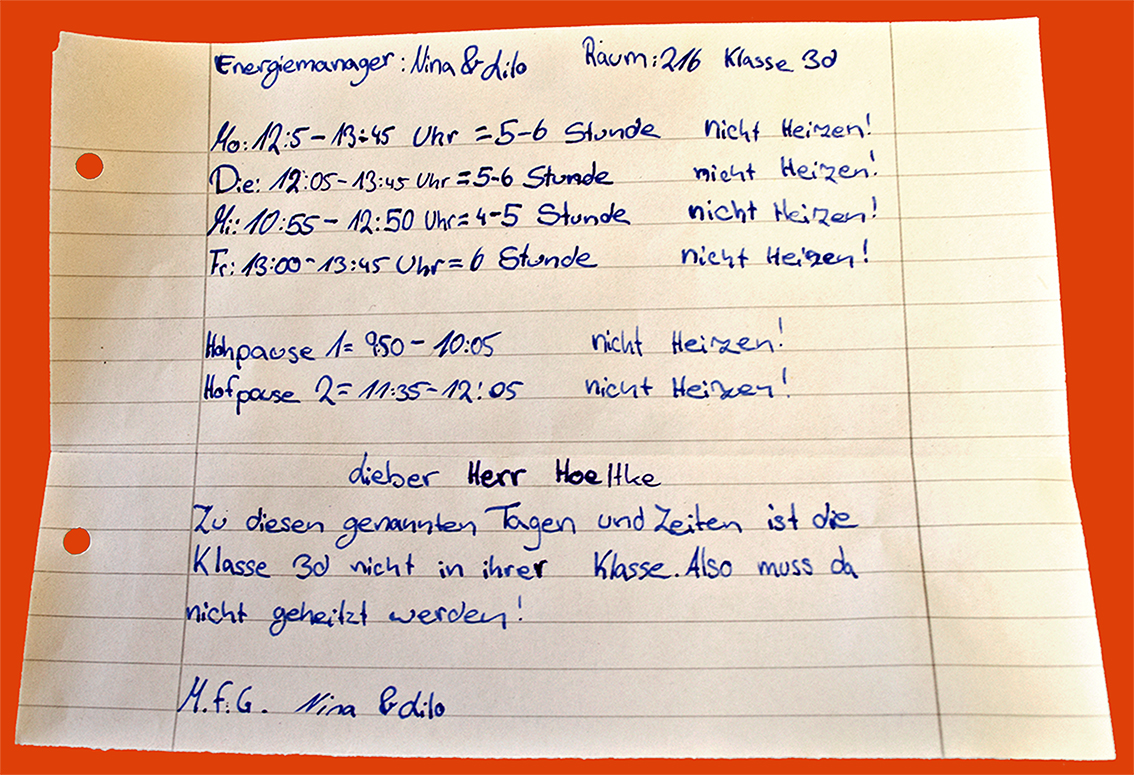 Energiemanager: Nina & Lilo Raum: 216 Klasse 3d
Mo: 12:5 - 13:45 Uhr = 5-6 Stunde nicht Heizen!
Die: 12:05 - 13:45 Uhr = 5-6 Stunde nicht Heizen!
Mi: 10:55 - 12:50 Uhr = 4-5 Stunde nicht Heizen!
Fr: 13:00 - 13:45 Uhr = 6 Stunde nicht Heizen!
Hohpause 1 = 9:50 - 10:05 nicht Heizen!
Hofpause 2 = 11:35 - 12:05 nicht Heizen!
Lieber Herr Hoeltke
Zu diesen genannten Tagen und Zeiten ist die
Klasse 3d nicht in ihrer Klasse. Also muss da
nicht geheitzt werden!
M.f.G. Nina & Lilo